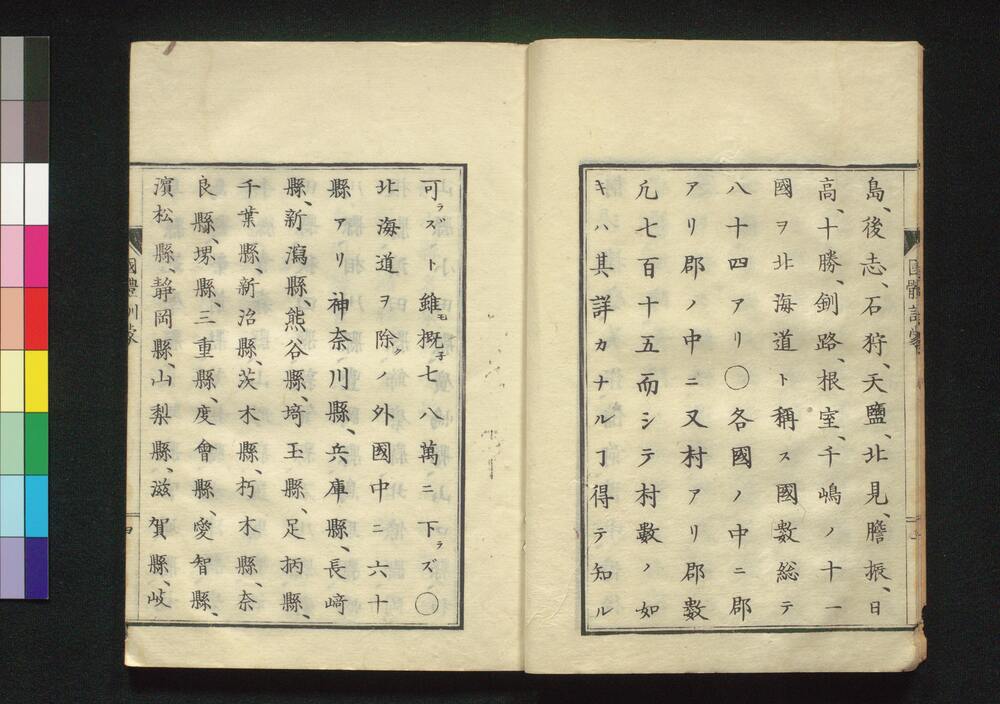 島、後志、石狩、天鹽、北見、膽振、日
高、十勝、釧路、根室、千嶋ノ十一
國ヲ北海道ト稱ス國數総テ
八十四アリ〇各國ノ中ニ郡
アリ郡ノ中ニ又村アリ郡數
凡七百十五而シテ村數ノ如
キハ其詳カナルヿ得テ知ル
可ラズト雖モ概子七八萬ニ下ラズ〇
北海道ヲ除クノ外國中ニ六十
縣アリ神奈川縣、兵庫縣、長﨑
縣、新瀉縣、熊谷縣、埼玉縣、足柄縣、
千葉縣、新治縣、茨木縣、朽木縣、奈
良縣、堺縣、三重縣、度會縣、愛智縣、
濱松縣、静岡縣、山梨縣、滋賀縣、岐
國體訓蒙
四